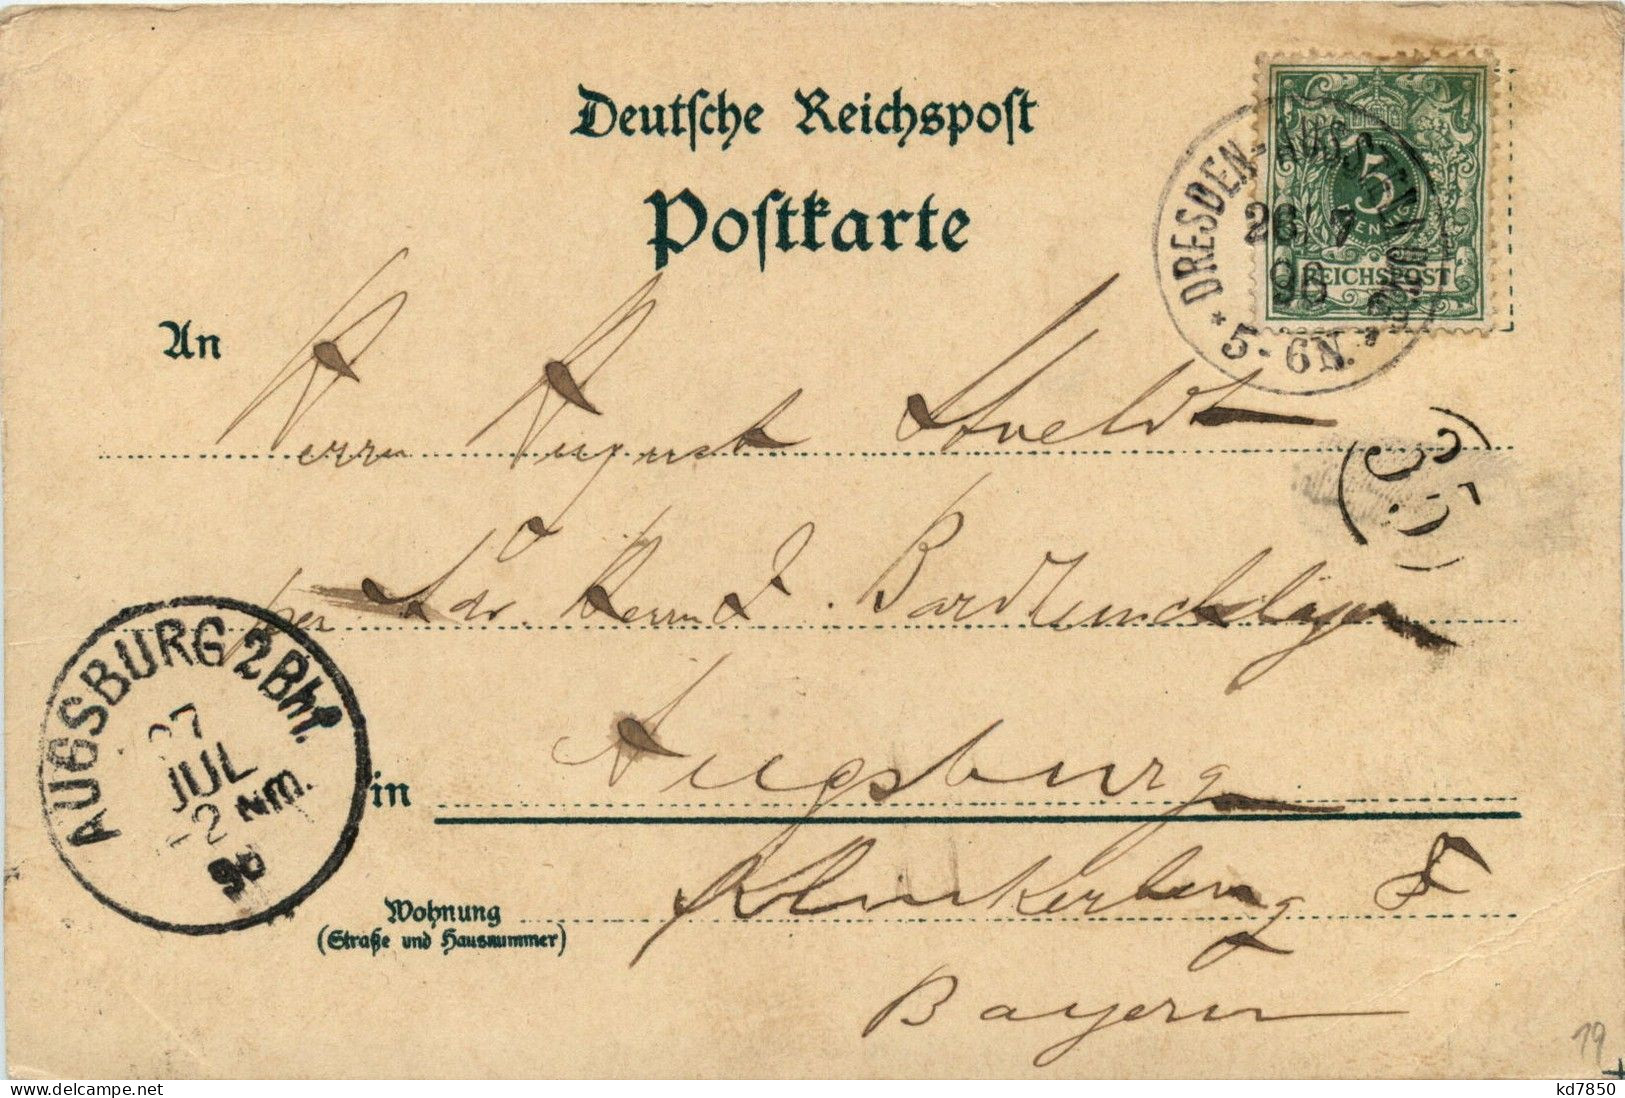 Deutsche Reichspost
Postkarte
DRESDEN-AUSSTELLUNG
26/7
96
5-6N.
5
PFENNIG
REICHSPOST
An
Herrn August
35
per Adr. Herrn J.
AUGSBURG 2 Bhf.
27
JUL
1-2 NM.
96
in Augsburg
Wohnung
(Straße und Hausnummer)
Klinkerberg
Bayern
19
kd7850